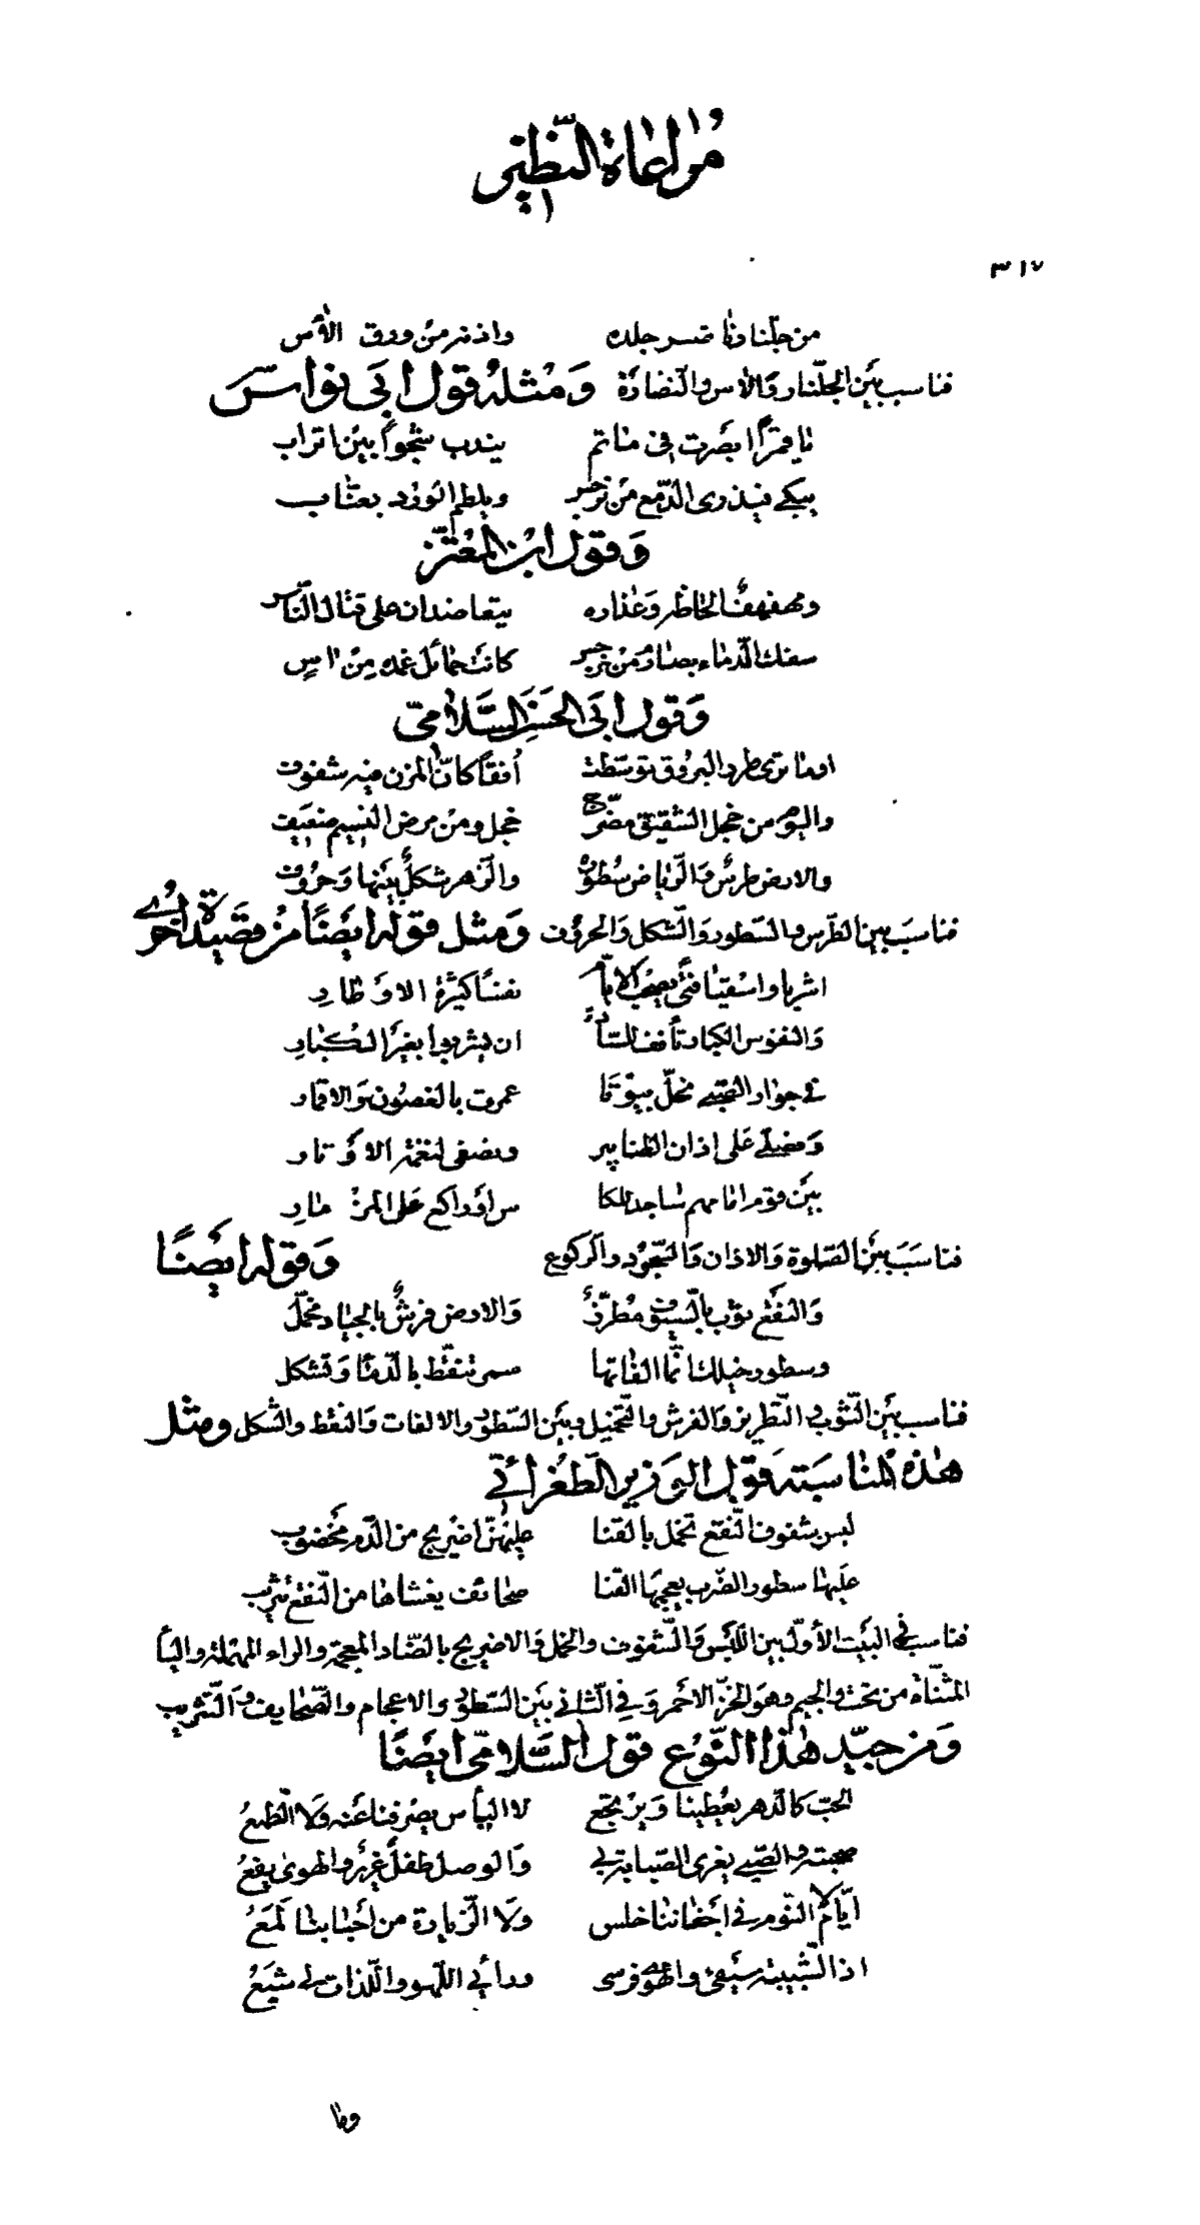 مُراعاة النّظير
٣١٧
من جلّنار ناضر جلده واذنه من ورق الآس
فناسب بين الجلّنار والاس والنضارة ومثله قول ابي نواس
يا قمرًا ابصرت في ماتم يندب شجوًا بين اتراب
يبكي فيذري الدّمع من نرجس ويلطم الورد بعنّاب
وقول ابن المعتز
ومهفهف الحاظه وعذاره يتعاضدان على قتال النّاس
سفك الدّماء بصارم من نرجس كانت حمائل غمده من اسٍ
وقول ابي الحسن السّلامي
اوما ترى طرد البروق توسّطت أفقًا كانّ المزن فيه شفوف
واليوم من خجل الشقيق مضرّج خجل ومن مرض النسيم ضعيف
والارض طرس والرّياض سطوره والزهر شكل بينها وحروف
فناسب بين الطّرس والسّطور والشّكل والحروف ومثل قوله ايضًا من قصيدة اخرى
اشربا واسقيا فتى يصحب الايّام نفسًا كثيرة الاوطار
والنفوس الكبار تأنف للسّادة ان يشربوا بغير الكبار
في جوار الصّبى نحلّ بيوتا عمرت بالغصون والاقمار
ونصلّي على اذان الطنابير ونصغي لنغمة الاوتار
بين قوم امامهم ساجد للكا س او راكع على المزمار
فناسب بين الصلوة والاذان والسّجود والركوع وقوله ايضًا
والنقع ثوب بالسيوف مطرّز والارض فرش بالجياد مخمّل
وسطور خيلك انّما الفاتها سمر تنقّط بالدّما وتشكل
فناسب بين الثّوب والتّطريز والفرش والتّخميل وبين السّطور والالفات والنقط والشّكل ومثل
هذه المناسبة قول الوزير الطّغرائي
لبس شفوف النّقع تخمل بالقنا عليهنّ اضريج من الدّم مخضوب
عليها سطور الضّرب يعجمها القنا صحائف يغشاها من النّقع تتريب
فناسب في البيت الأوّل بين اللّبس والشّفوف والخمل والاضريج بالضّاد المعجمة والراء المهملة واليا
المثنّاة من تحت والجيم وهو الخزّ الاحمر وفي الثّاني بين السّطور والاعجام والصّحايف والتّتريب
ومن جيّد هذا النّوع قول السّلامي ايضًا
الحبّ كالدّهر يعطينا ويرتجع لا الياس يصرفنا عنه ولا الطّمع
صحبته والصّبى يغري الصّبابة بي والوصل طفل غرير والهوى يفع
ايّام لا النّوم في اجفاننا خلس ولا الزّيارة من احبابنا لمع
اذ الشّبيبة سيفي والهوى فرسي ورائي اللّهو واللّذات لي شيع
وما